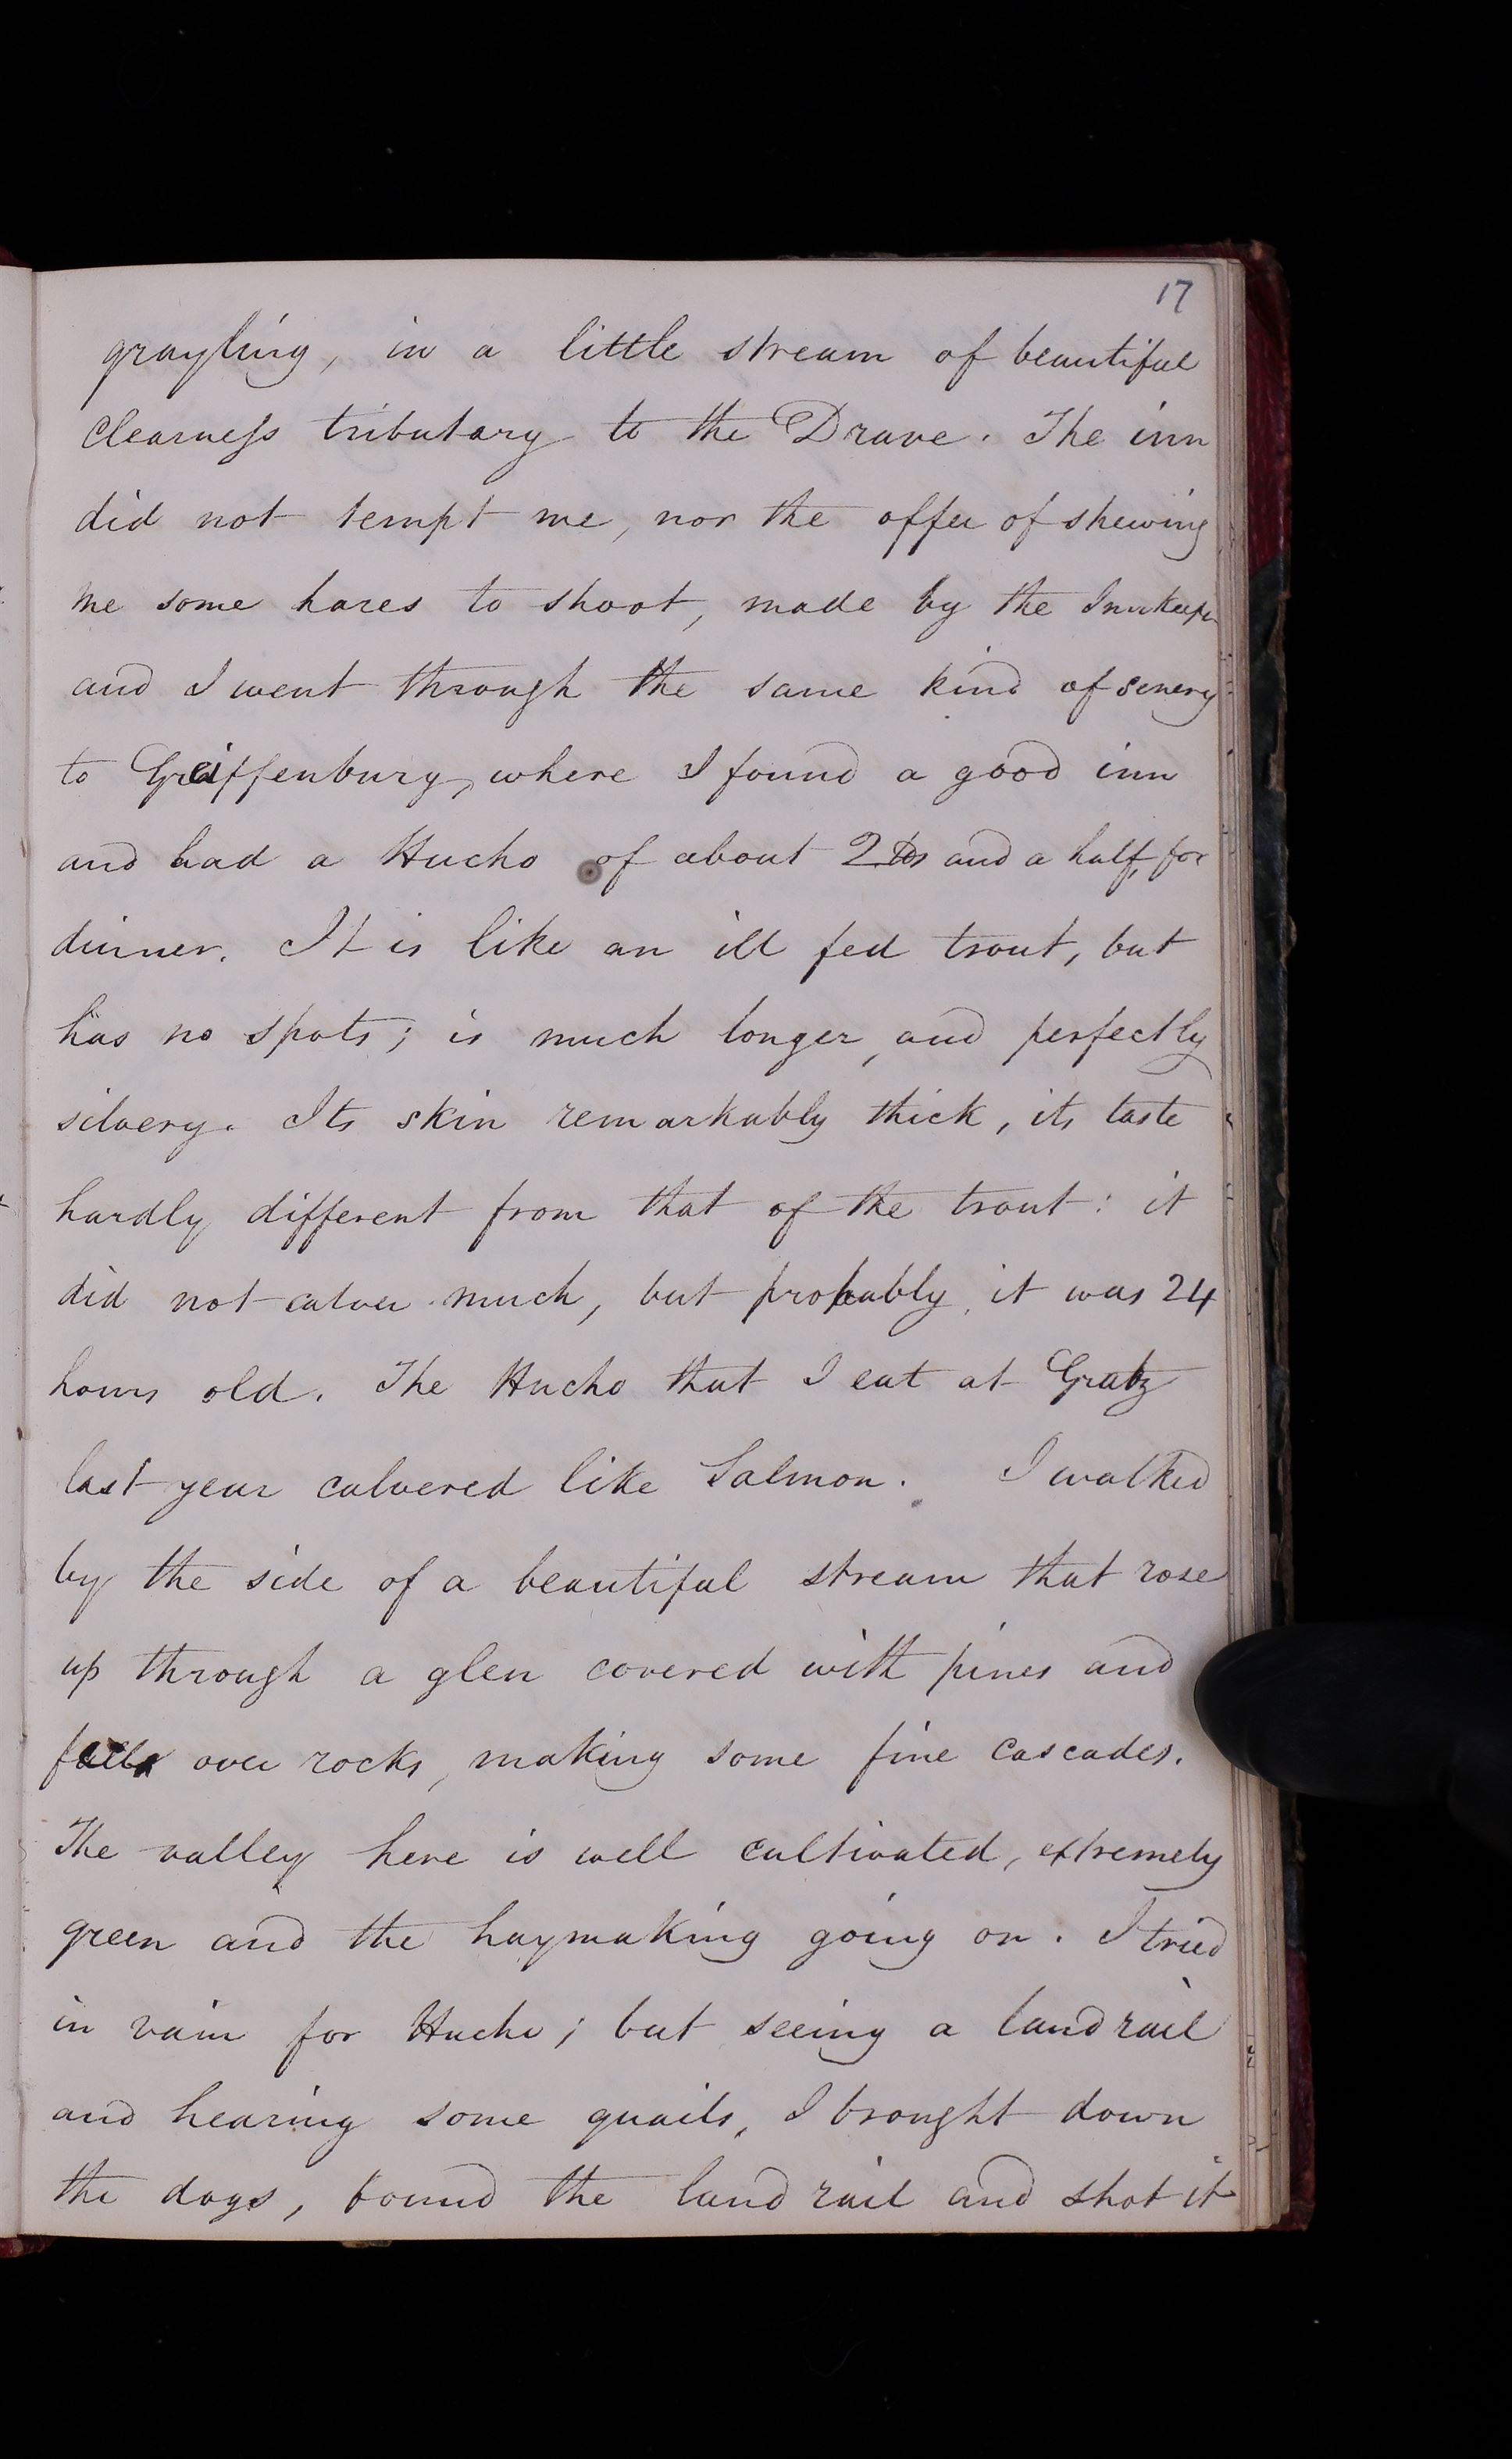 17
grayling, in a little stream of beautiful
clearneſs tributary to the Drave. The inn
did not tempt me, nor the offer of shewing
me some hares to shoot, made by the Innkeeper
and I went through the same kind of senery
to Greiffenburg, where I found a good inn
and had a Hucho of about 2 lbs and a half, for
dinner. It is like an ill fed trout, but
has no spots; is much longer, and perfectly
silvery. Its skin remarkably thick, its taste
hardly different from that of the trout: it
did not calver much, but probably it was 24
hours old. The Hucho that I eat at Gratz
last year calvered like Salmon. I walked
by the side of a beautiful stream that rose
up through a glen covered with pines and
over rocks, making some fine cascades.
The valley here is well cultivated, extremely
green and the haymaking going on. I tried
in vain for Hucho; but seeing a land rail
and hearing some quails, I brought down
the dogs, found the land rail and shot it